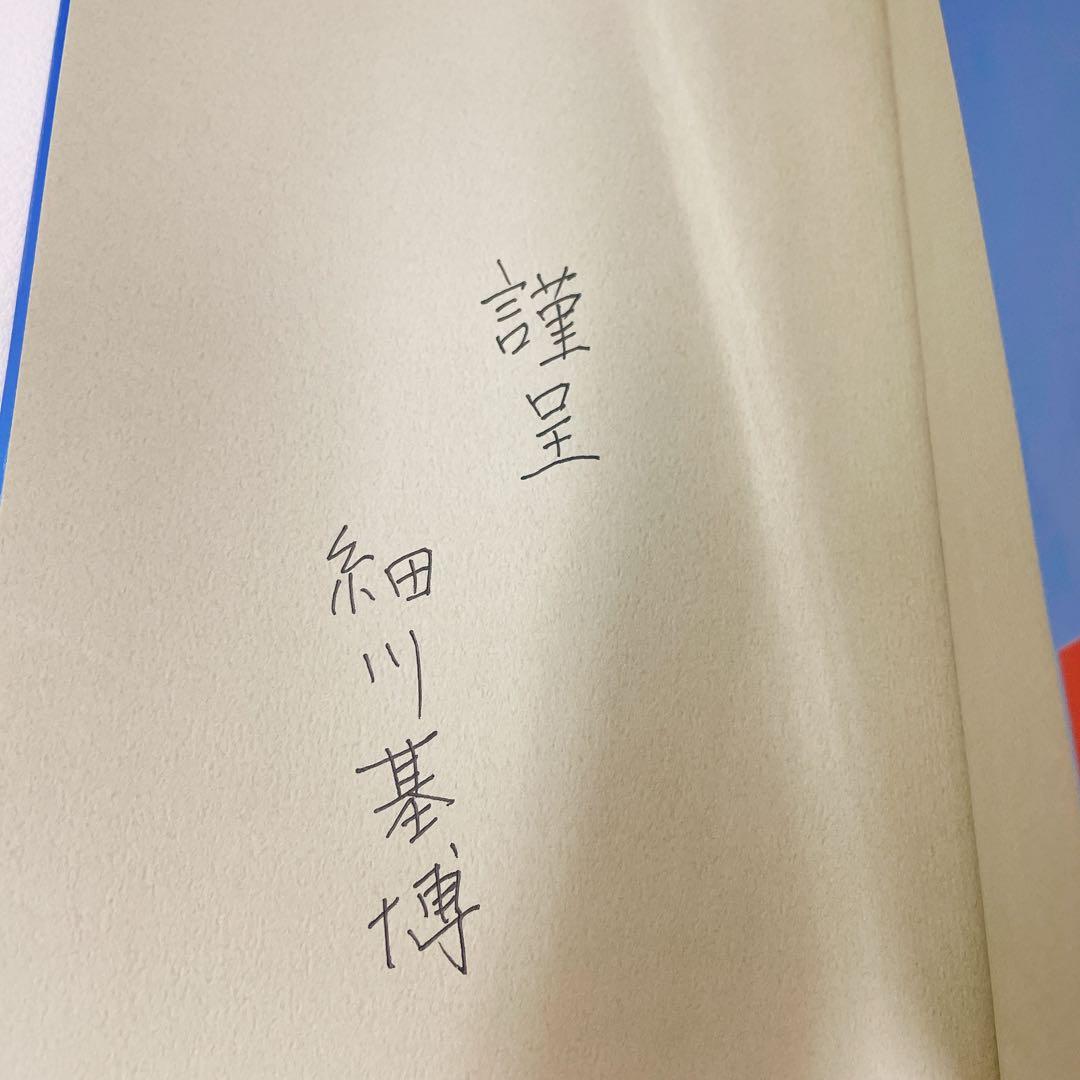 謹呈
細川基博